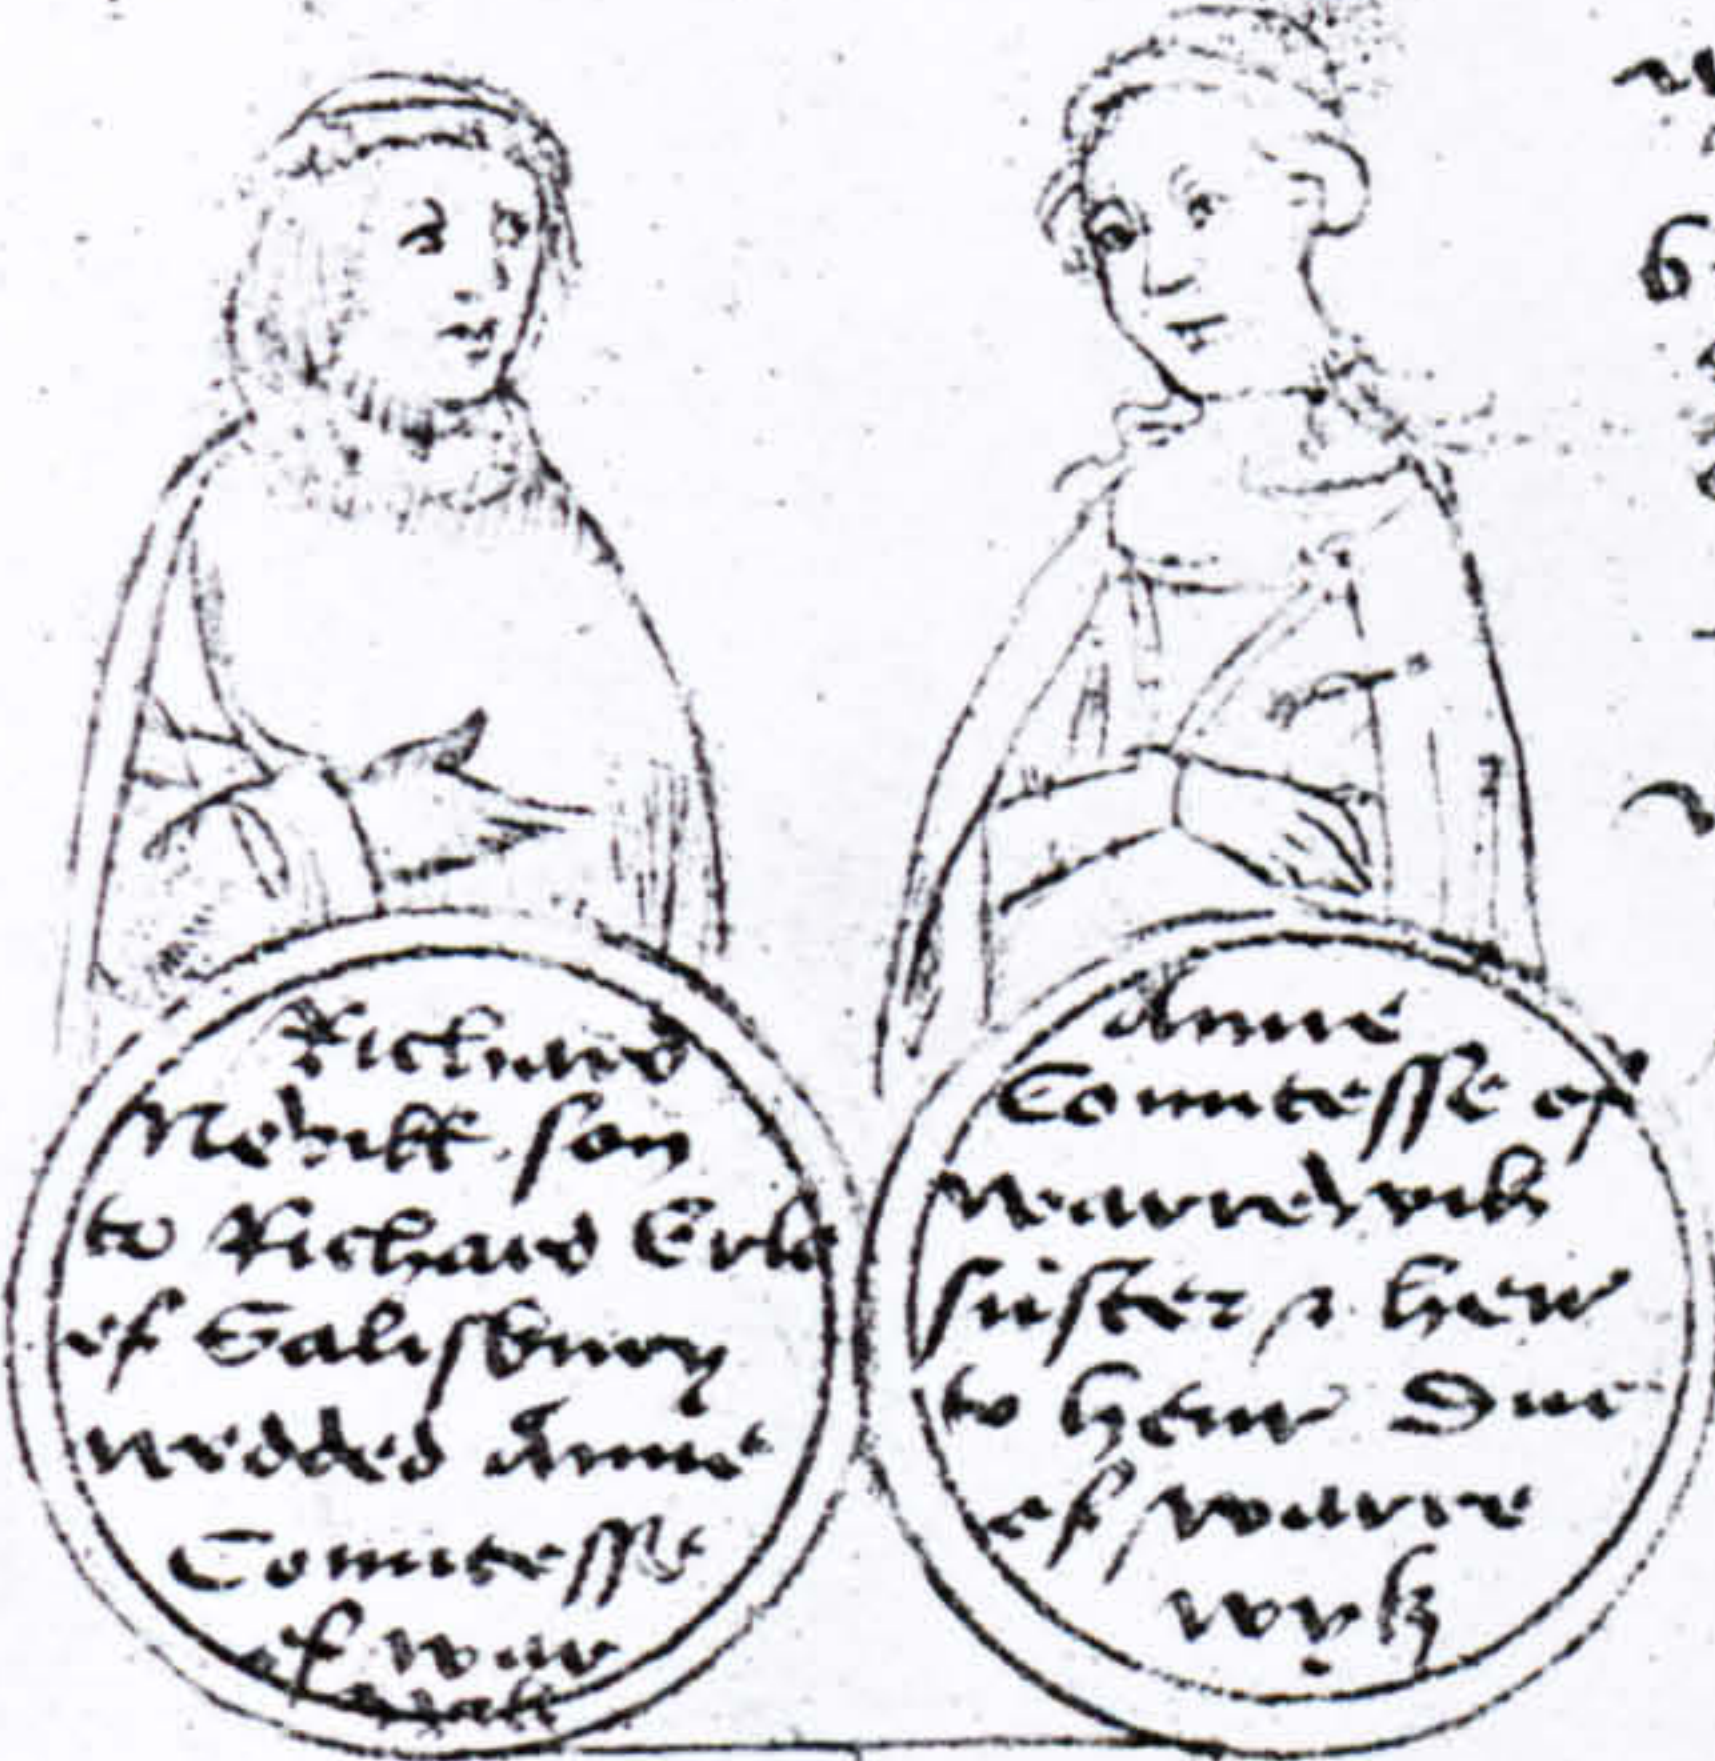 Richard
Nevill son
to Richard Erle
of Salisbury
wedded Anne
Comtesse
of war
Anne
Comtesse of
warrewik
suster & heir
to henr Duc
of warre
wyk